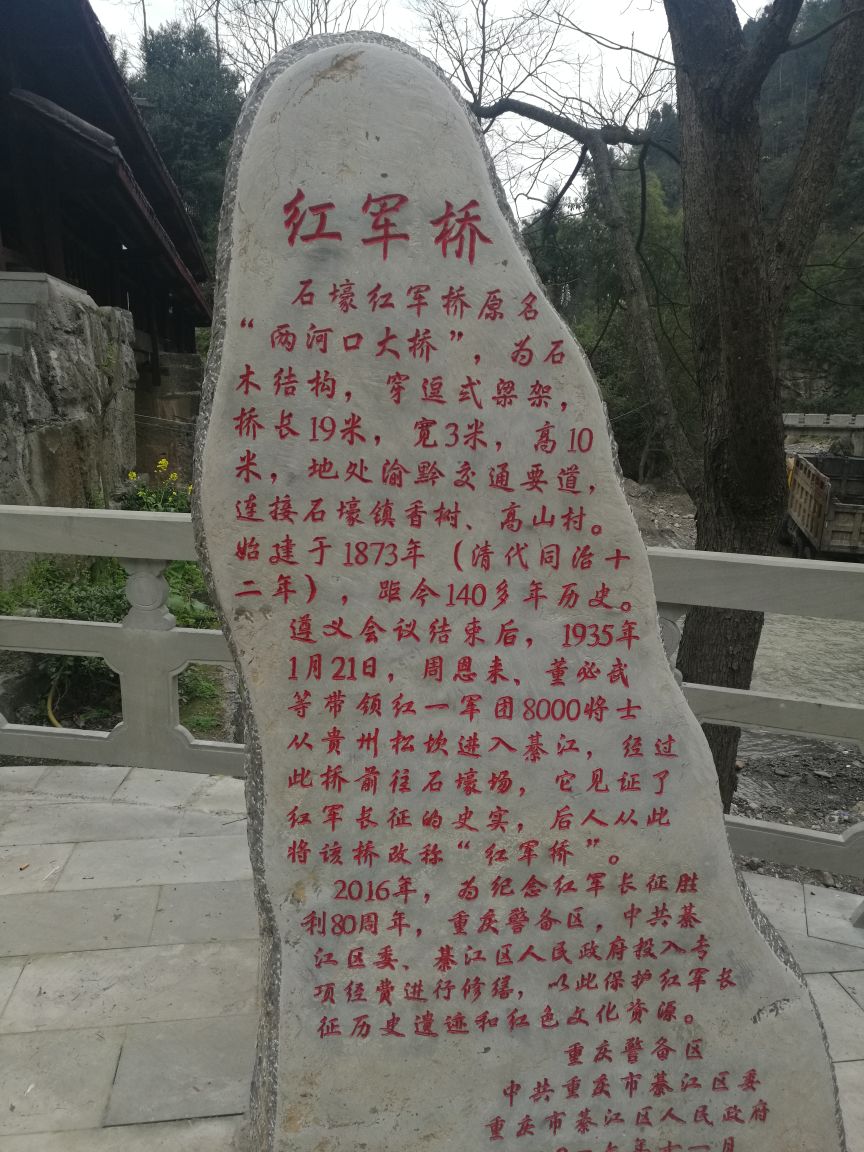 红军桥
石壕红军桥原名
“两河口大桥”，为石
木结构，穿逗式梁架，
桥长19米，宽3米，高10
米，地处渝黔交通要道，
连接石壕镇香树、高山村。
始建于1873年（清代同治十
二年），距今140多年历史。
遵义会议结束后，1935年
1月21日，周恩来、董必武
等带领红一军团8000将士
从贵州松坎进入綦江，经过
此桥前往石壕场，它见证了
红军长征的史实，后人从此
将该桥改称“红军桥”。
2016年，为纪念红军长征胜
利80周年，重庆警备区，中共綦
江区委、綦江区人民政府投入专
项经费进行修缮，以此保护红军长
征历史遗迹和红色文化资源。
重庆警备区
中共重庆市綦江区委
重庆市綦江区人民政府